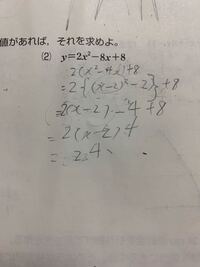 値があれば，それを求めよ。
(2) y=2x²-8x+8
2(x²-4x)+8
=2{(x-2)²-2}+8
=2(x-2)-4+8
=2(x-2)4
=2 4